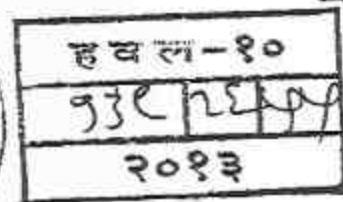 हवल-१०
१३९ २६ ५५
२०१३